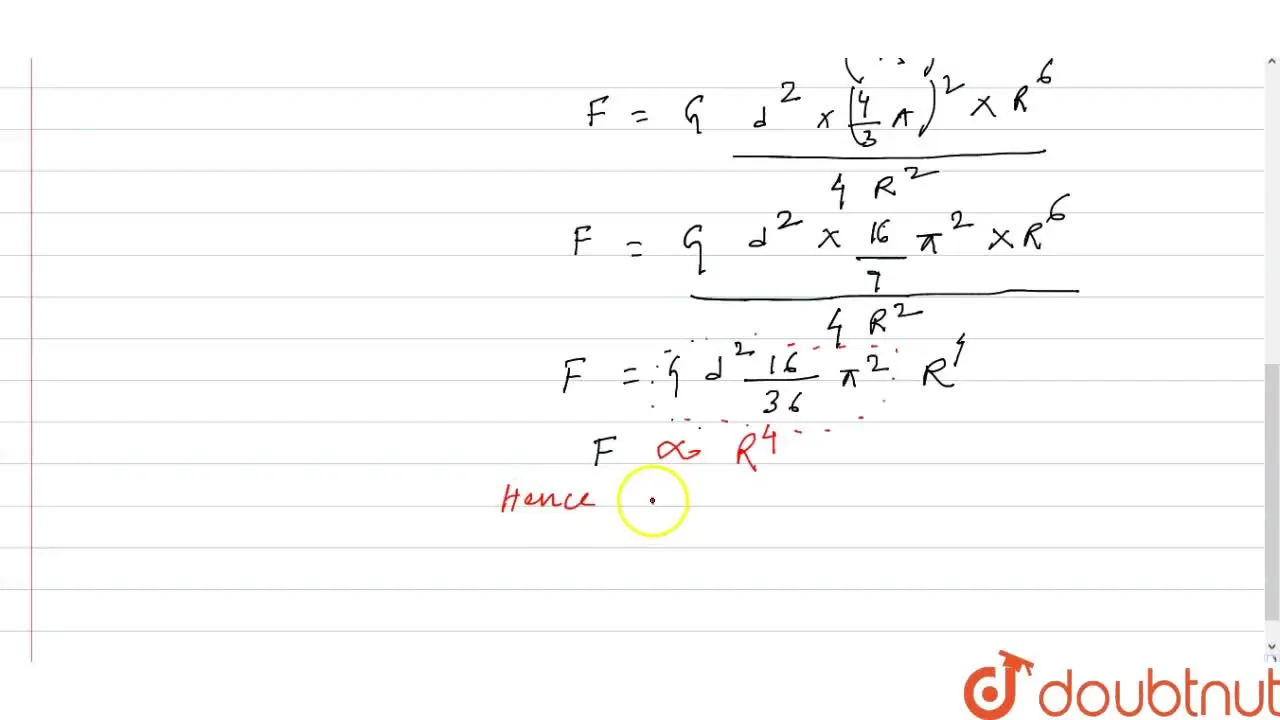 F = G d² × (4/3 π)² × R⁶
4 R²
F = G d² × 16/7 π² × R⁶
4 R²
F = G d² 16/36 π² R⁴
F ∝ R⁴
Hence
doubtnut